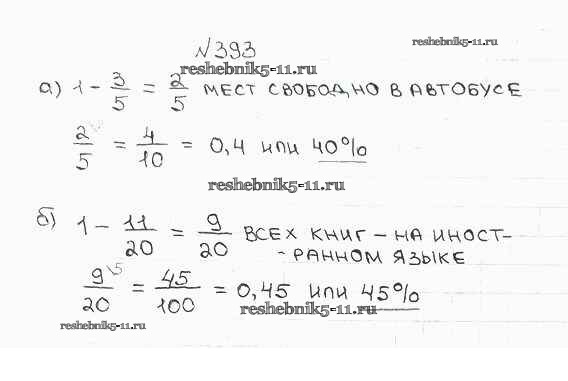 №393
reshebnik5-11.ru
reshebnik5-11.ru
а) 1 - 3/5 = 2/5 МЕСТ СВОБОДНО В АВТОБУСЕ
2/5 = 4/10 = 0,4 или 40%
reshebnik5-11.ru
б) 1 - 11/20 = 9/20 ВСЕХ КНИГ - НА ИНОСТ-
- РАННОМ ЯЗЫКЕ
9\5/20 = 45/100 = 0,45 или 45%
reshebnik5-11.ru
reshebnik5-11.ru